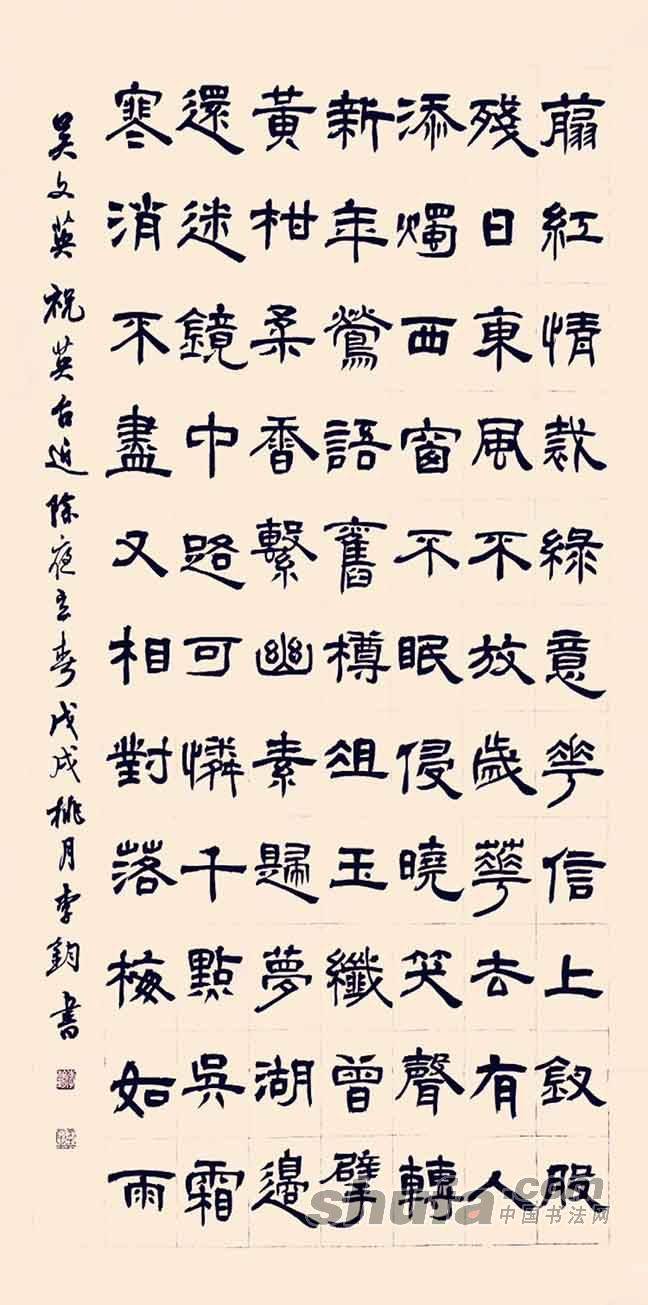 翦紅情裁綠意花信上釵股
殘日東風不放歲華去有人
添燭西窗不眠侵曉笑聲轉
新年鶯語舊樽俎玉纖曾擘
黃柑柔香繫幽素歸夢湖邊
還迷鏡中路可憐千點吳霜
寒消不盡又相對落梅如雨
吳文英祝英台近除夜立春戊戌桃月李鈞書
shufa.com
中国书法网